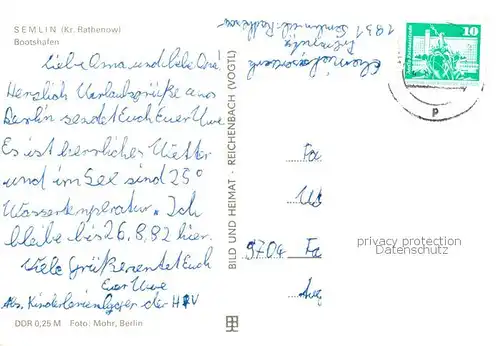 SEMLIN (Kr. Rathenow)
Bootshafen
Liebe Oma und lieber Opa!
Herzlich Urlaubsgrüße aus
Berlin sendet Euch Euer Uwe
Es ist herrliches Wetter
und im See sind 25°
Wassertemperatur. Ich
bleibe bis 26.8.82 hier.
Viele Grüße sendet Euch
Euer Uwe
Abs. Kinderferienlager der
DDR 0,25 M Foto: Mohr, Berlin
BILD UND HEIMAT · REICHENBACH (VOGTL)
1831
10
p
Fa
9704
privacy protection
Datenschutz